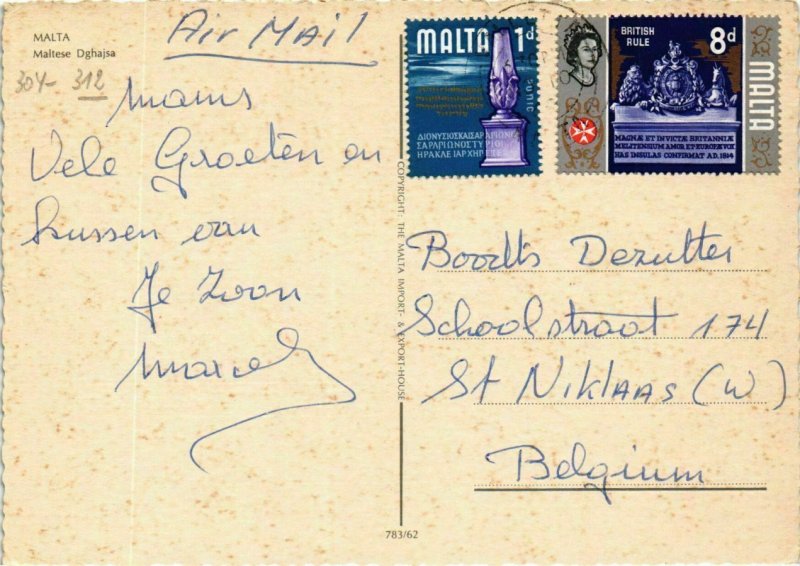 MALTA
Maltese Dghajsa
304- 312
Air Mail
Mams
Vele Groeten en
kussen van
Je Zoon
Marcel
COPYRIGHT: THE MALTA IMPORT- & EXPORT-HOUSE
783/62
MALTA 1d
PUNIC
ΔΙΟΝΥΣΙΟΣΚΑΙΣΑΡΑΠΙΩΝΟΙ
ΣΑΡΑΠΙΩΝΟΣΤΥΡΙΟΙ
ΗΡΑΚΛΕΙΑΡΧΗΓΕΤΕΙ
BRITISH
RULE
8d
MALTA
MAGNÆ ET INVICTÆ BRITANNIÆ
MELITENSIUM AMOR ET EUROPÆ VOX
HAS INSULAS CONFIRMAT A.D. 1814
Schoolstraat 174
St Niklaas (W)
Belgium